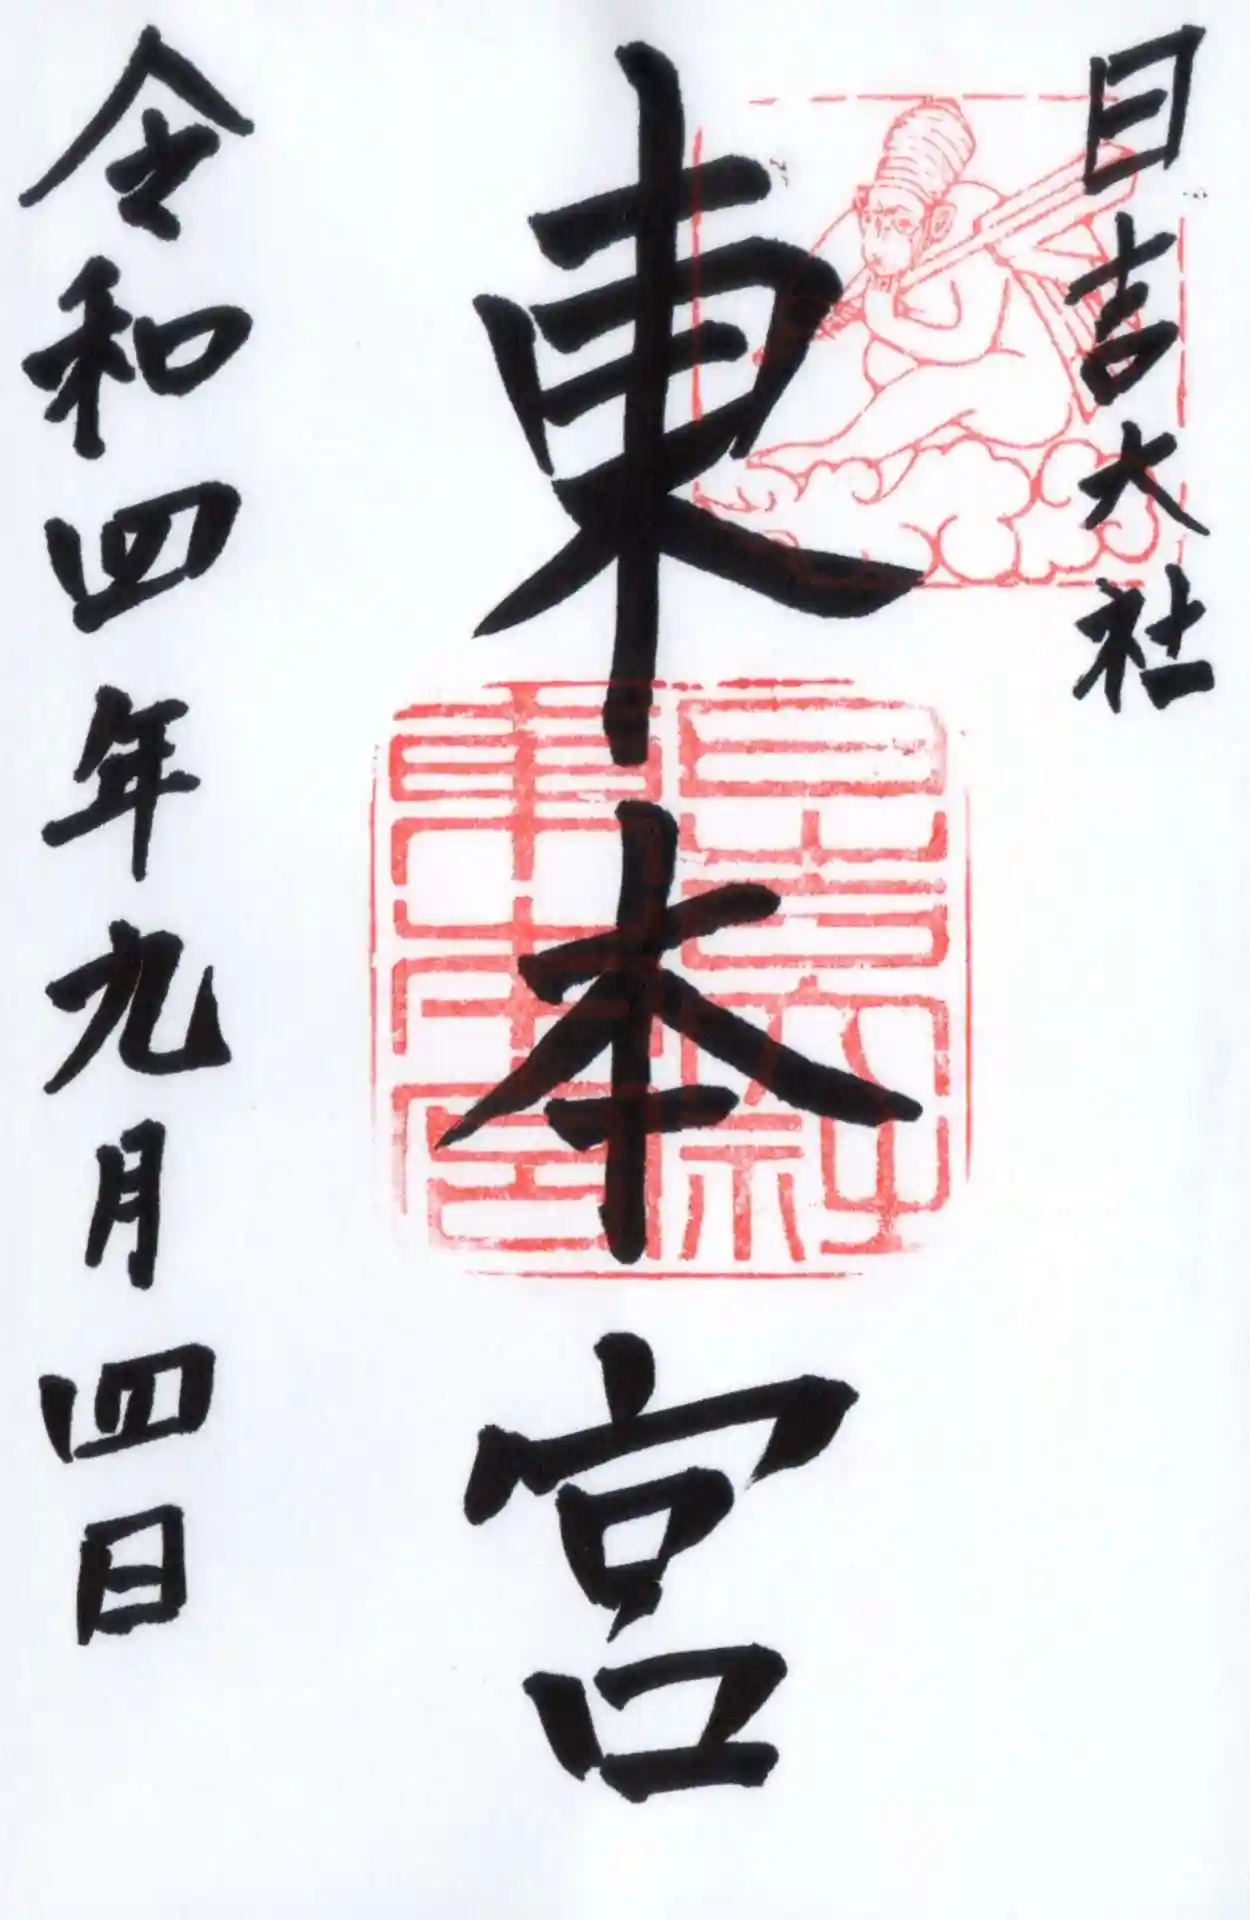 日吉大社
東本宮
令和四年九月四日
日吉大社
東本宮